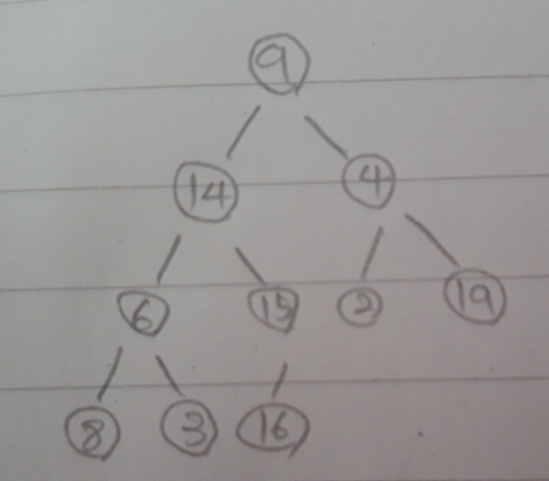 9
14 4
6 15 2 19
8 3 16